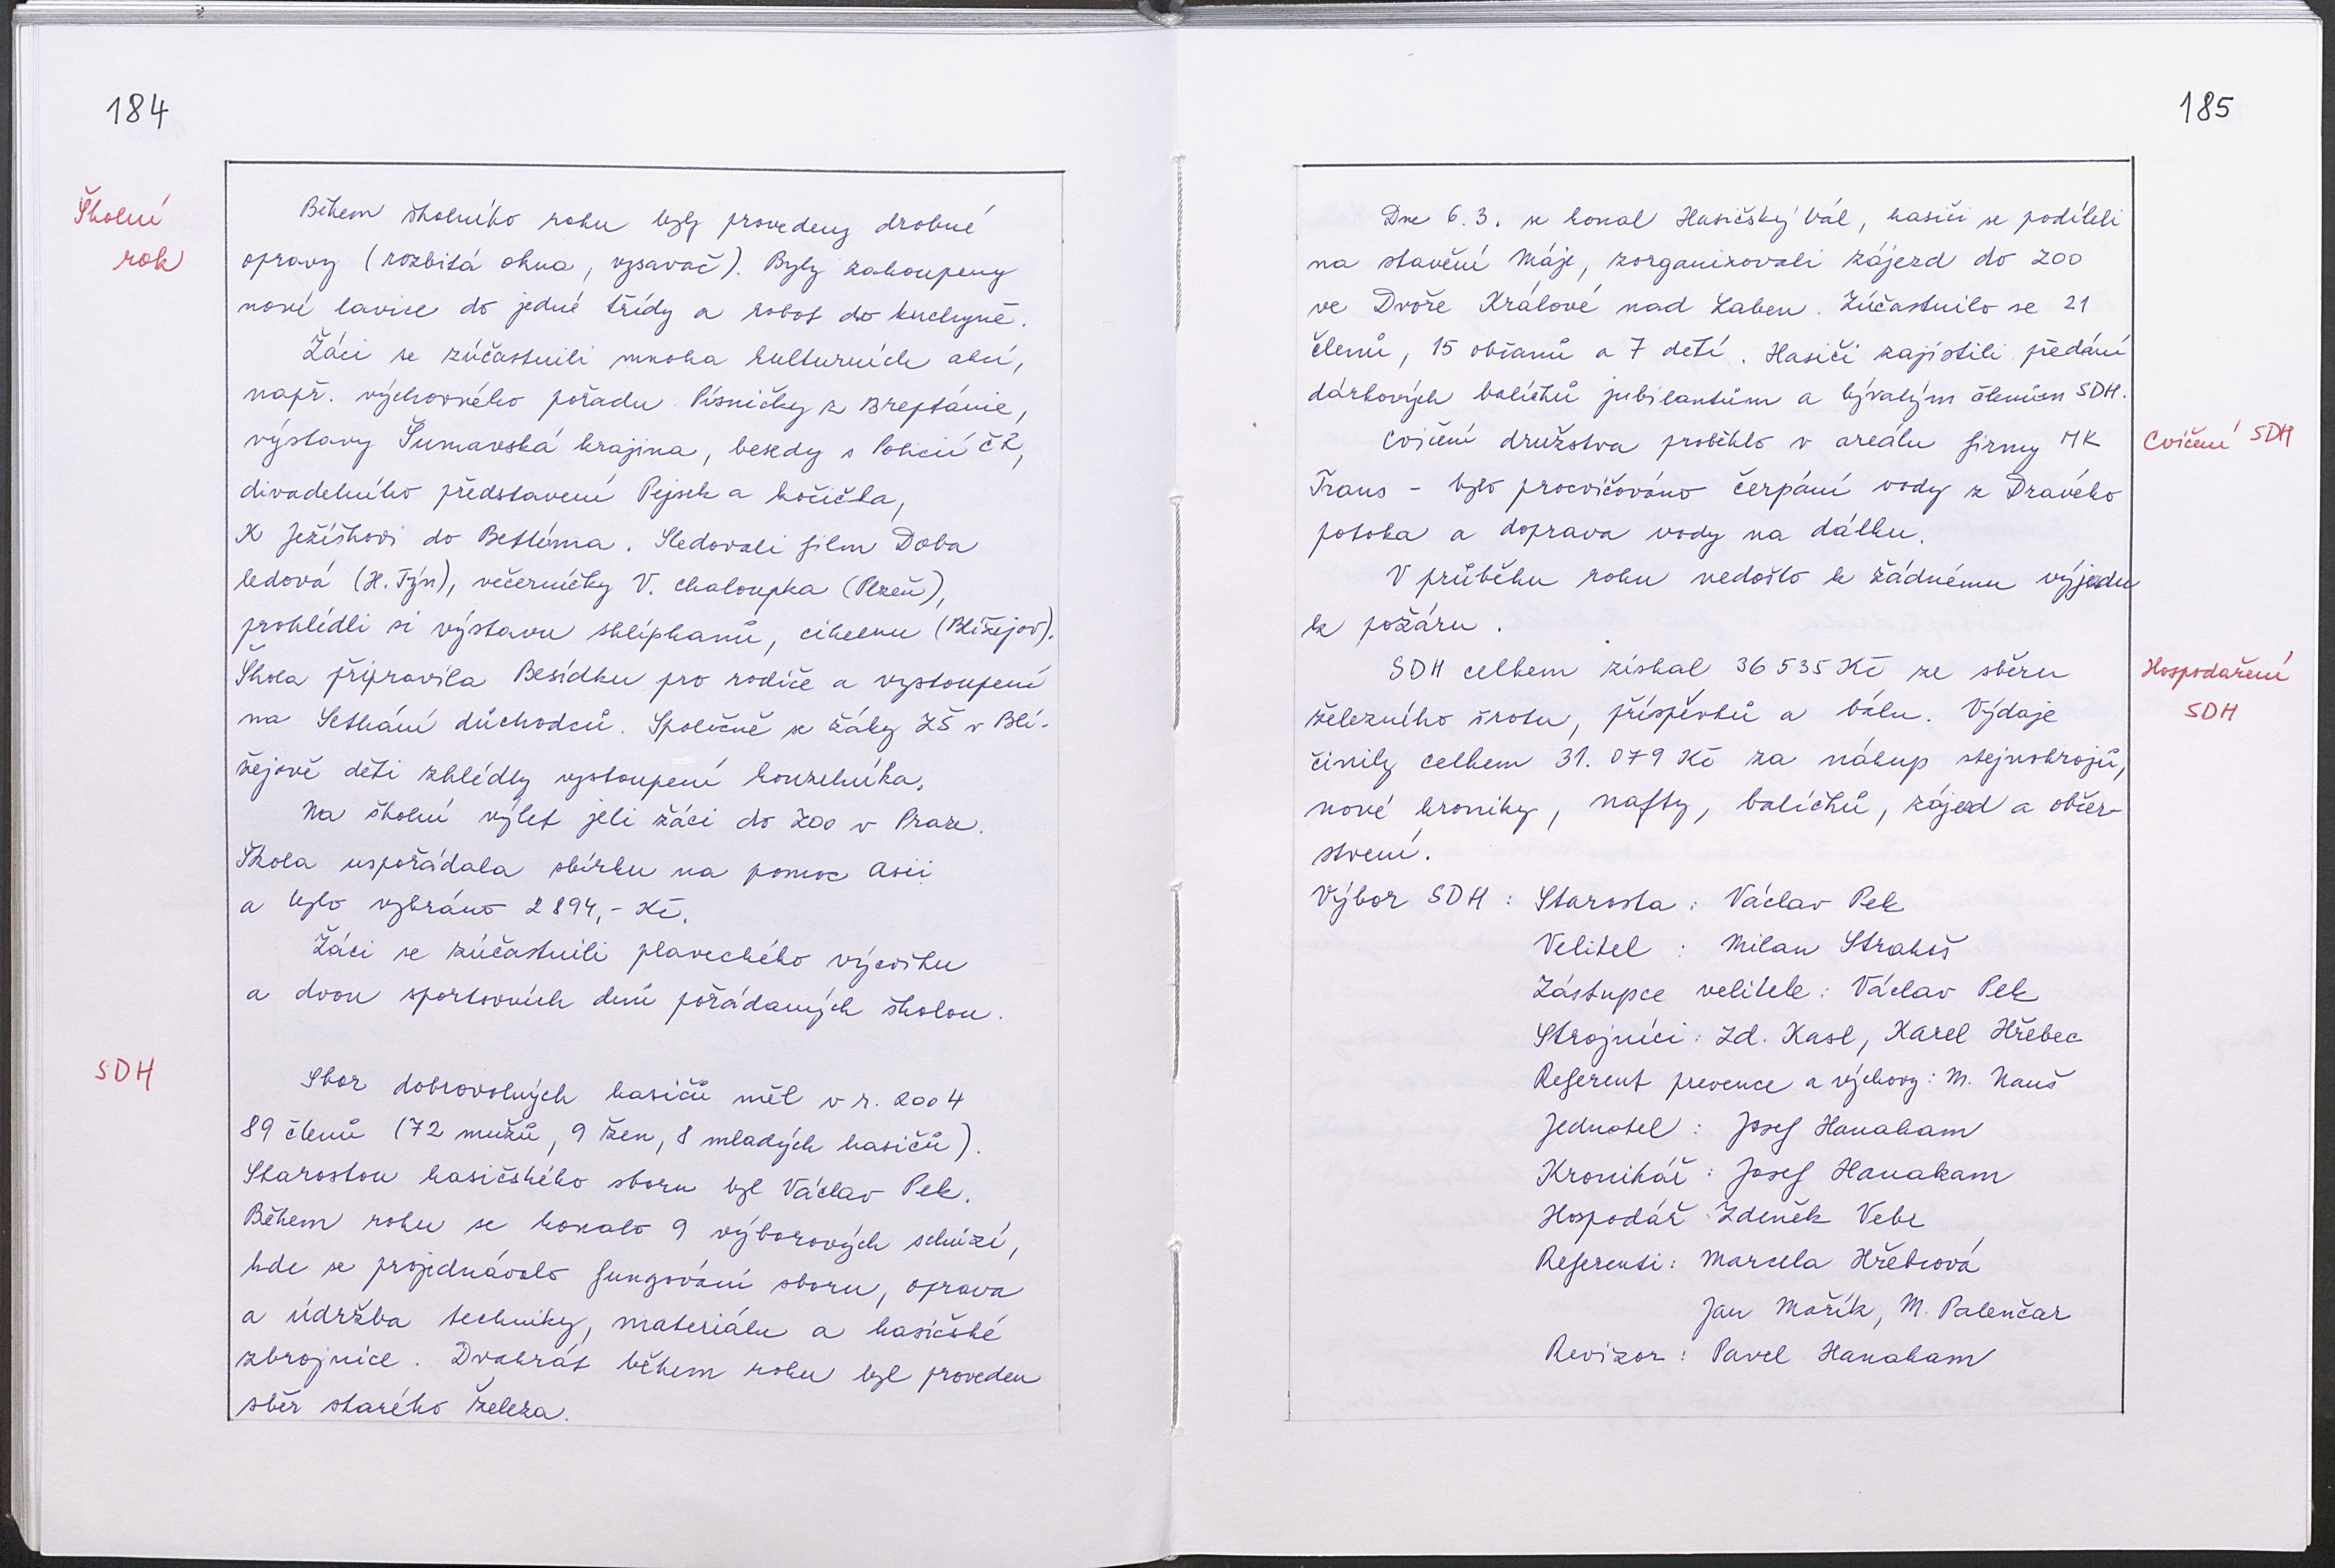 184
Školní
rok
Během školního roku byly provedeny drobné
opravy (rozbitá okna, vysavač). Byly zakoupeny
nové lavice do jedné třídy a robot do kuchyně.
Žáci se zúčastnili mnoha kulturních akcí,
např. výchovného pořadu Písničky z Breptánie,
výstavy Šumavská krajina, besedy s Policií ČR,
divadelního představení Pejsek a kočička,
K Ježíškovi do Betléma. Sledovali film Doba
ledová (H. Týn), večerníčky V. Chaloupka (Plzeň),
prohlédli si výstavu sklípkanů, cihelnu (Blížejov).
Škola připravila Besídku pro rodiče a vystoupení
na Setkání důchodců. Společně se žáky ZŠ v Blí-
žejově děti zhlédly vystoupení kouzelníka.
Na školní výlet jeli žáci do Zoo v Praze.
Škola uspořádala sbírku na pomoc Asii
a bylo vybráno 2 894,- Kč.
Žáci se zúčastnili plaveckého výcviku
a dvou sportovních dnů pořádaných školou.
SDH
Sbor dobrovolných hasičů měl v r. 2004
89 členů (72 mužů, 9 žen, 8 mladých hasičů).
Starostou hasičského sboru byl Václav Pek.
Během roku se konalo 9 výborových schůzí,
kde se projednávalo fungování sboru, oprava
a údržba techniky, materiálu a hasičské
zbrojnice. Dvakrát během roku byl proveden
sběr starého železa.
185
Dne 6.3. se konal Hasičský bál, hasiči se podíleli
na stavění Máje, zorganizovali zájezd do ZOO
ve Dvoře Králové nad Laben. Zúčastnilo se 21
členů, 15 občanů a 7 dětí. Hasiči zajistili předání
dárkových balíčků jubilantům a bývalým členům SDH.
Cvičení družstva proběhlo v areálu firmy MK
Trans - bylo procvičováno čerpání vody z Dravého
potoka a doprava vody na dálku.
Cvičení SDH
V průběhu roku nedošlo k žádnému výjezdu
k požáru.
SDH celkem získal 36 535 Kč ze sběru
železného šrotu, příspěvků a bálu. Výdaje
činily celkem 31.079 Kč za nákup stejnokrojů,
nové kroniky, nafty, balíčků, zájezd a občer-
stvení.
Hospodaření
SDH
Výbor SDH : Starosta : Václav Pek
Velitel : Milan Strakoš
Zástupce velitele : Václav Pek
Strojníci : Zd. Kasl, Karel Hřebec
Referent prevence a výchovy : M. Nauš
Jednatel : Josef Hanakam
Kronikář : Josef Hanakam
Hospodář : Zdeněk Vebr
Referenti : Marcela Hřebcová
Jan Mařík, M. Palenčar
Revizor : Pavel Hanakam